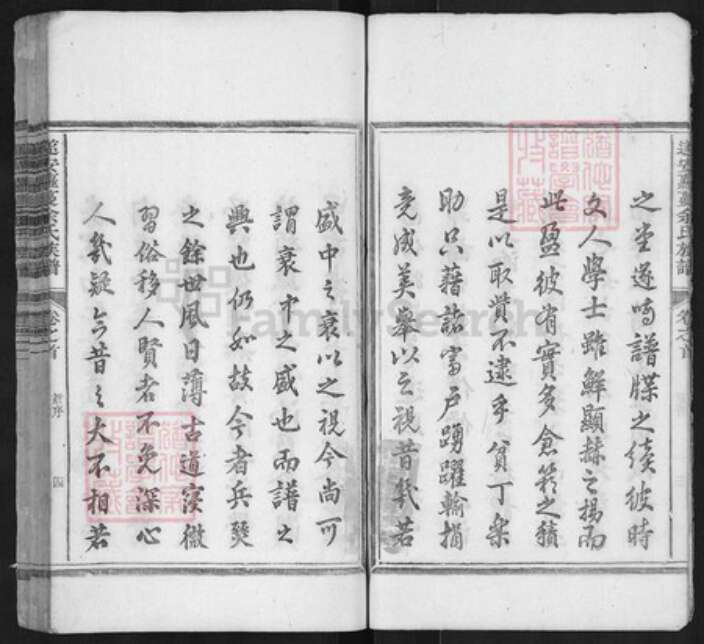 之堂遂鳴譜牒之續彼時
文人學士雖鮮顯赫之揚而
此盈彼有實多倉箱之積
是以取貲不逮乎貧丁樂
助只藉諸富戶踴躍輸捐
竟成美舉以之視昔幾若
盛中之衰以之視今尚可
謂衰中之盛也而譜之
興也仍如故今者兵燹
之餘世風日薄古道寖微
習俗移人賢者不免深心
人幾疑今昔之大不相若
余氏族譜
卷之首
新序
四
余氏族譜
卷之首
FamilySearch